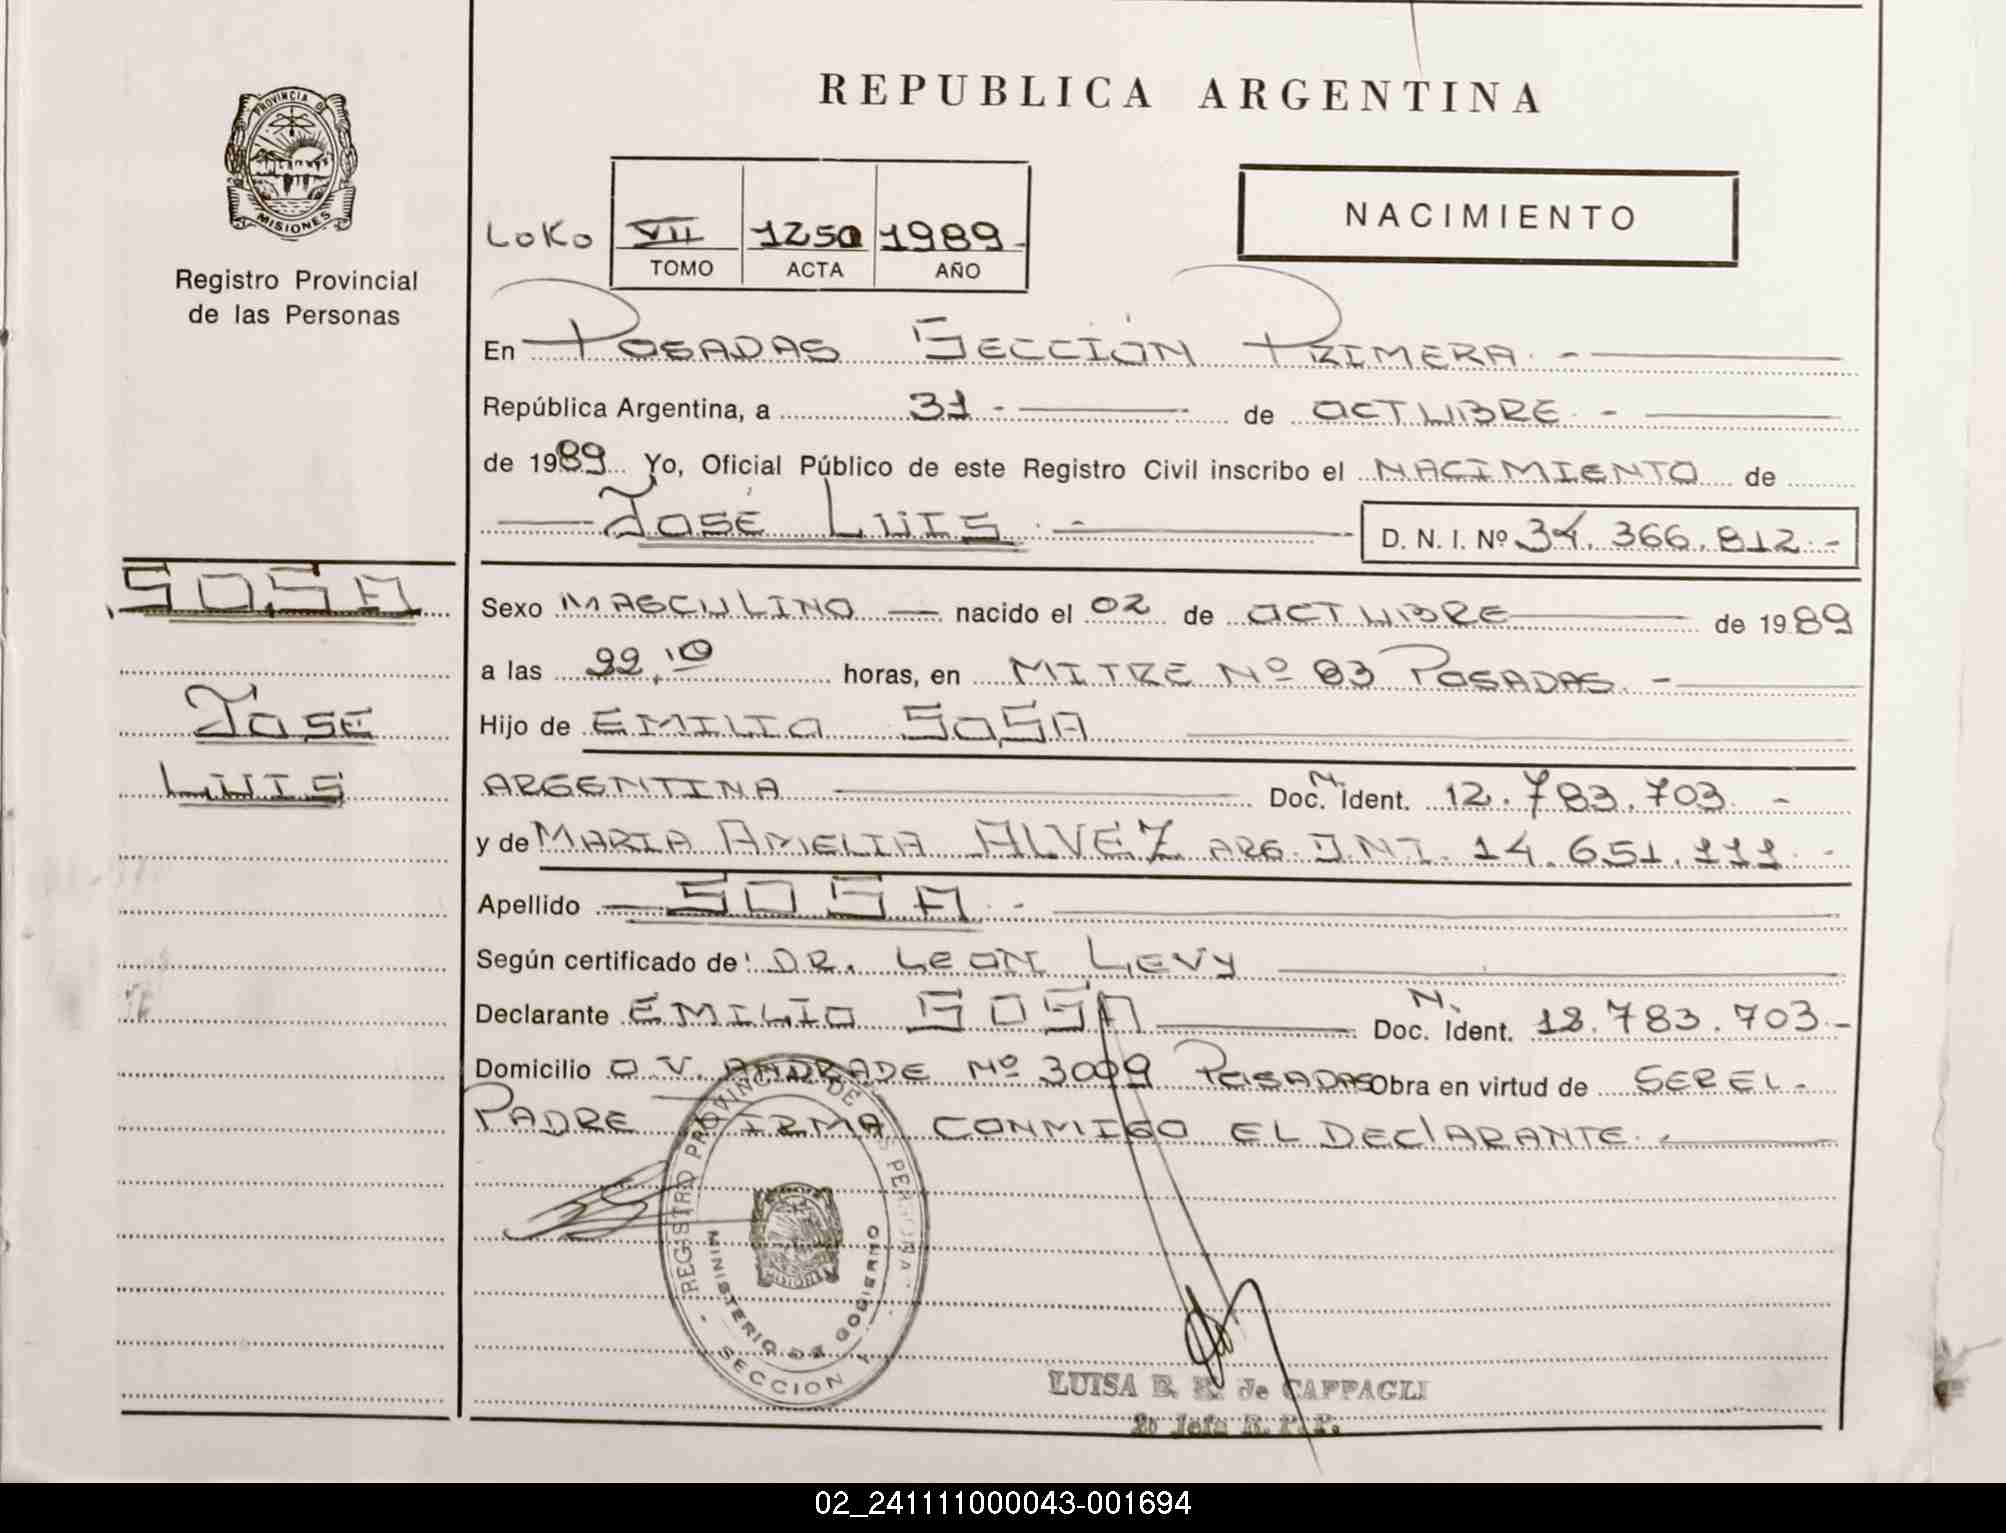 REPUBLICA ARGENTINA
PROVINCIA DE
MISIONES
Registro Provincial
de las Personas
LOKO VII 1250 1989
TOMO ACTA AÑO
NACIMIENTO
En POSADAS SECCIÓN PRIMERA
República Argentina, a 31 de OCTUBRE
de 1989 Yo, Oficial Público de este Registro Civil inscribo el NACIMIENTO de
JOSÉ LUIS D. N. I. Nº 34.366.812.-
SOSA
JOSE
LUIS
Sexo MASCULINO nacido el 02 de OCTUBRE de 1989
a las 22,10 horas, en MITRE Nº 83 POSADAS.-
Hijo de EMILIO SOSA
ARGENTINA Doc. N. Ident. 12.783.703.-
y de MARIA AMELIA ALVEZ ARG. D.N.I. 14.651.111.-
Apellido SOSA.-
Según certificado de: DR. LEON LEVY
Declarante EMILIO SOSA Doc. N. Ident. 12.783.703.-
Domicilio O V. ANDRADE Nº 3009 POSADAS Obra en virtud de SER EL
PADRE FIRMA CONMIGO EL DEClARANTE.
REGISTRO PROVINCIAL DE LAS PERSONAS
MINISTERIO DE GOBIERNO
SECCION 1
LUISA E. de CAPPAGLI
2º Jefa R. P. P.
02_241111000043-001694